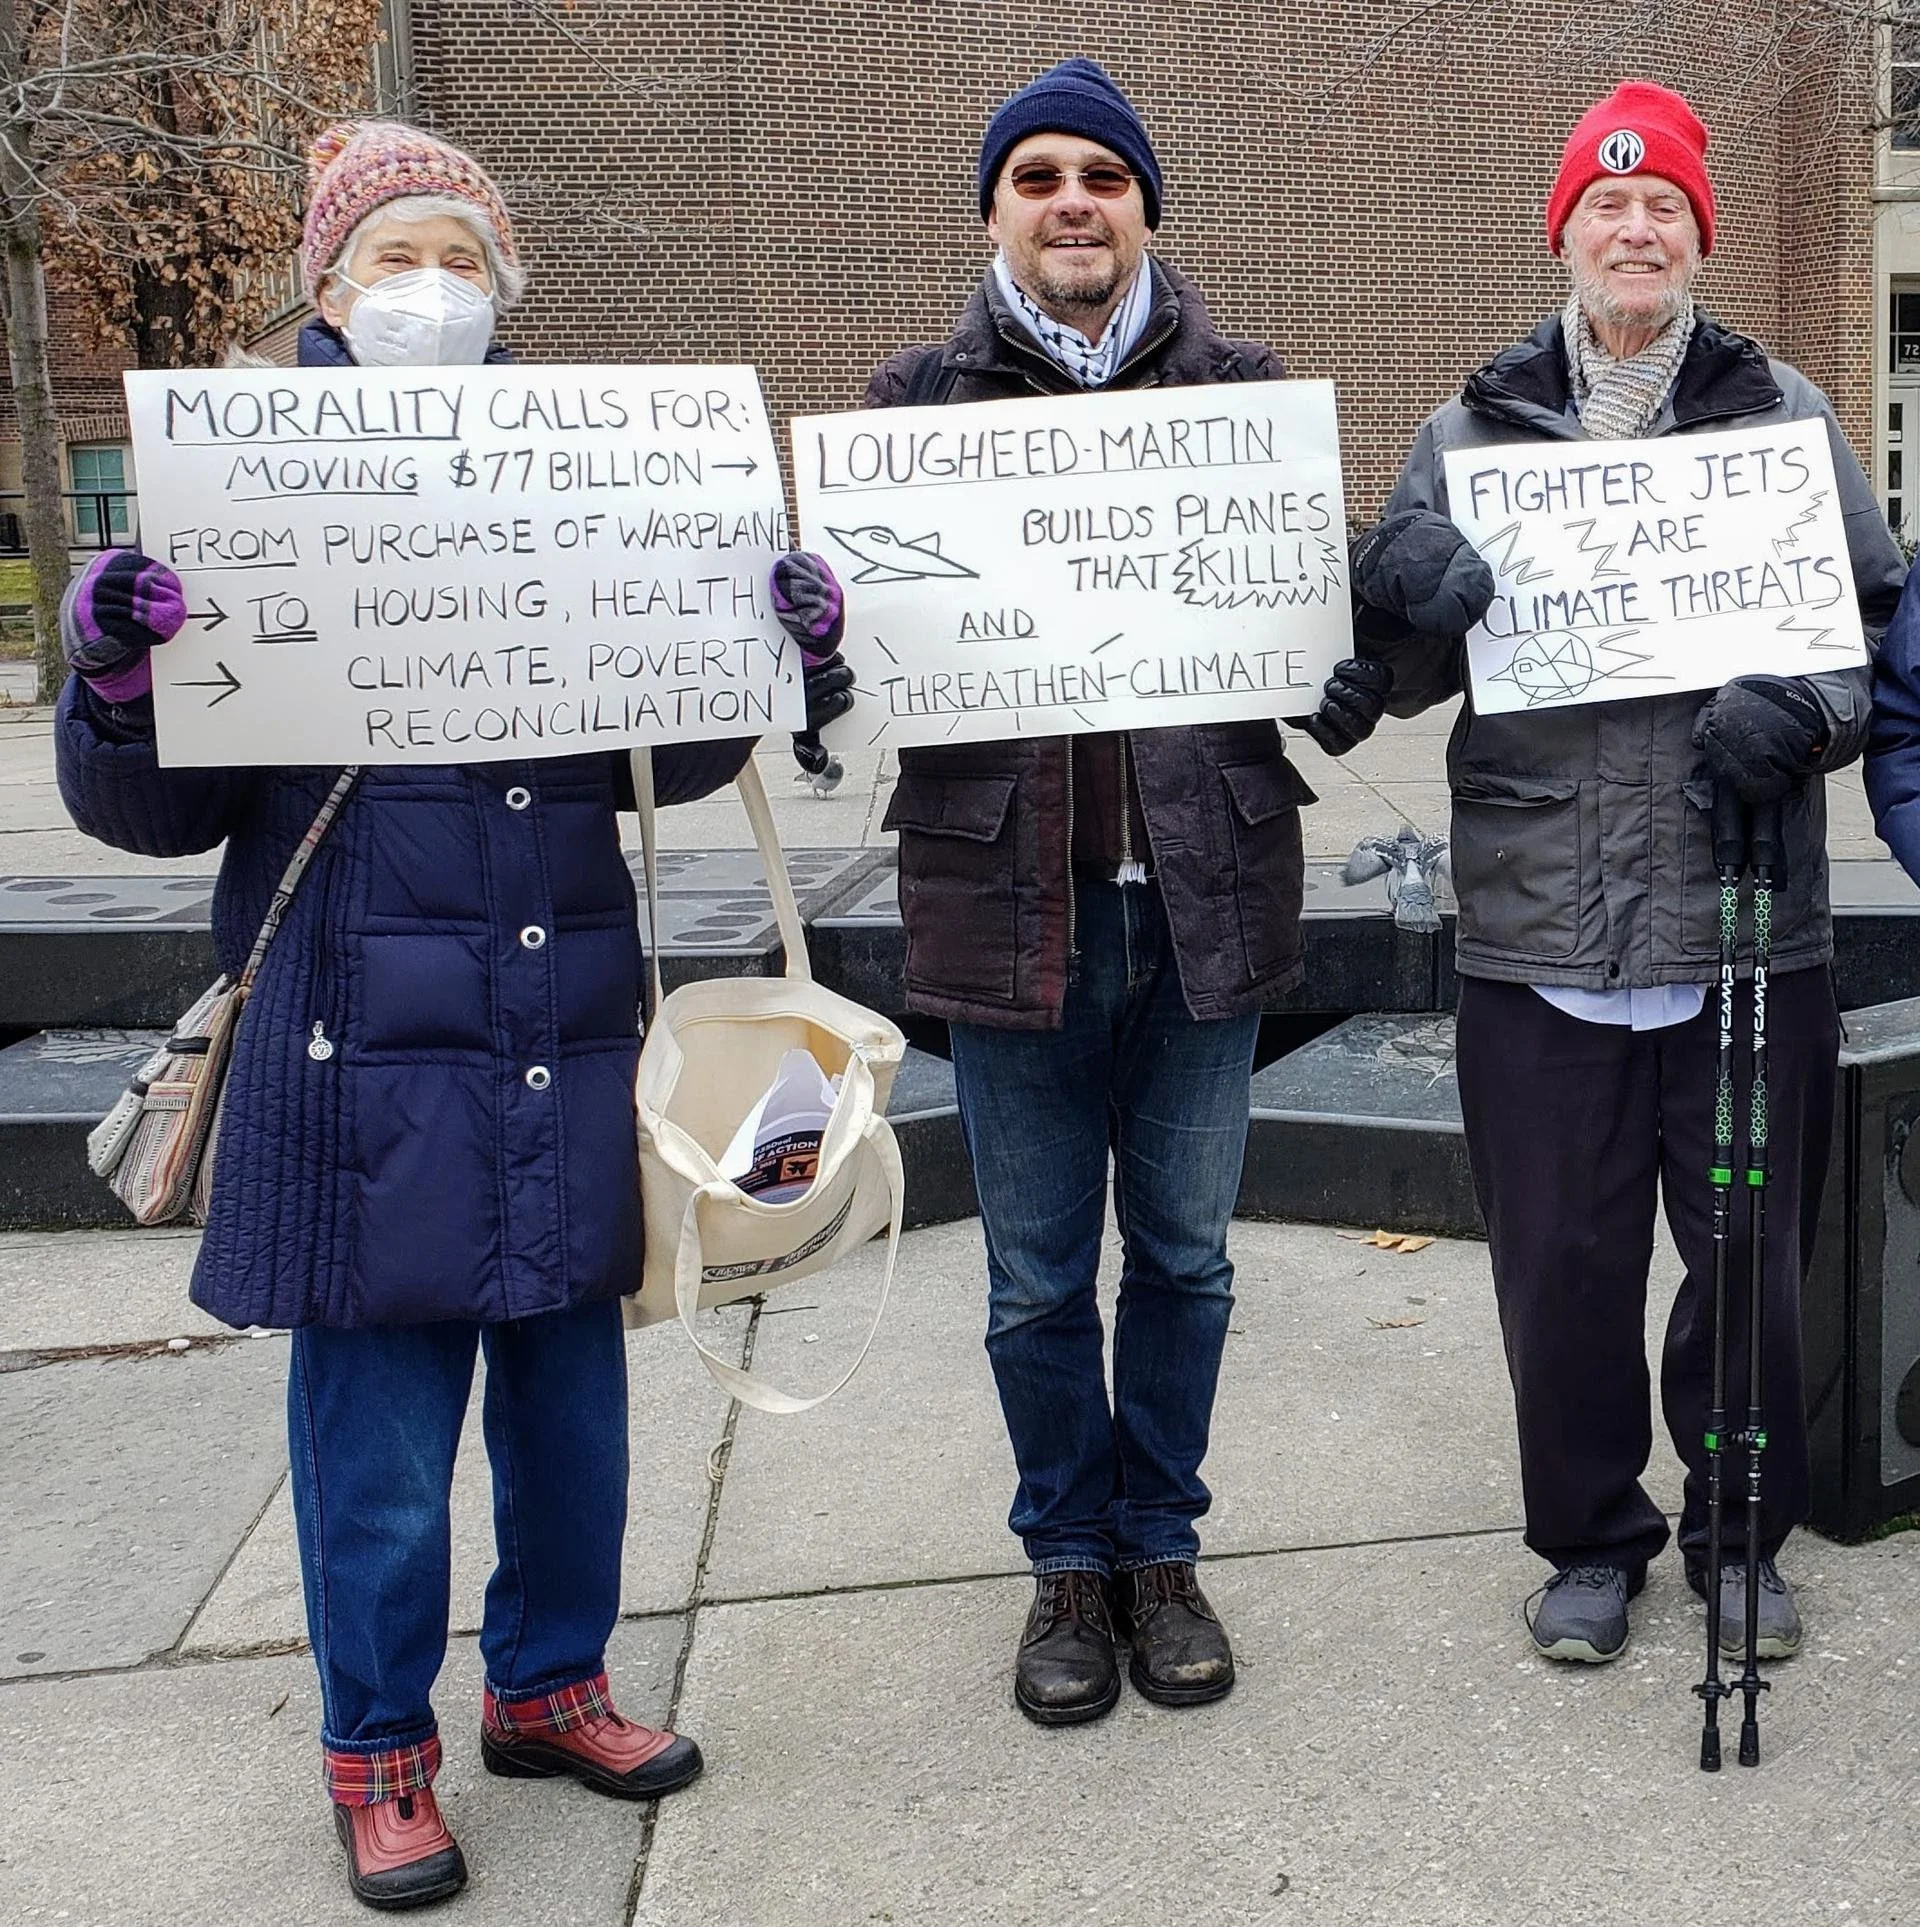 MORALITY CALLS FOR:
MOVING $77 BILLION →
FROM PURCHASE OF WARPLANE
→ TO HOUSING, HEALTH,
→ CLIMATE, POVERTY,
RECONCILIATION
LOUGHEED-MARTIN
BUILDS PLANES
THAT KILL!
AND
THREATHEN-CLIMATE
FIGHTER JETS
ARE
CLIMATE THREATS
CPT
72
OF ACTION
CAMP
CAMP